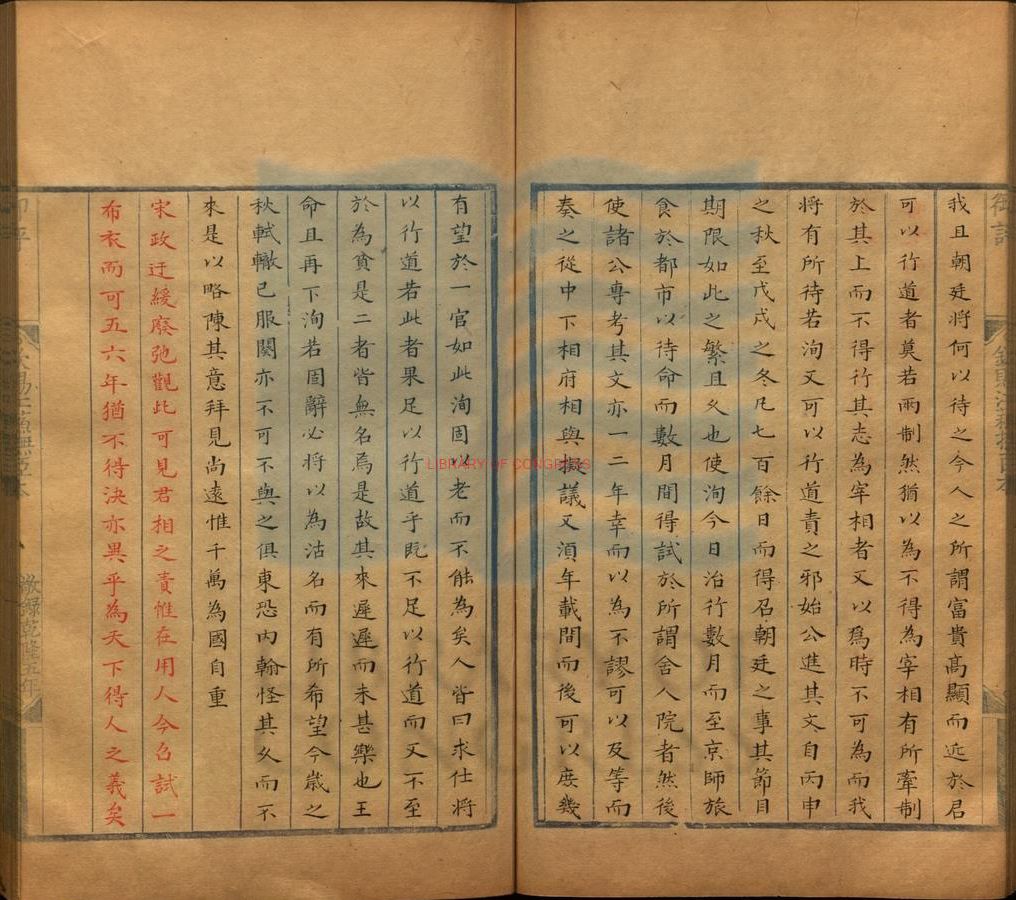 我且朝廷將何以待之今人之所謂富貴高顯而近於君
可以行道者莫若兩制然猶以為不得為宰相有所牽制
於其上而不得行其志為宰相者又以為時不可為而我
將有所待若洵又可以行道責之邪始公進其文自丙申
之秋至戊戌之冬凡七百餘日而得召朝廷之事其節目
期限如此之繁且久也使洵今日治行數月而至京師旅
食於都市以待命而數月間得試於所謂舍人院者然後
使諸公專考其文亦一二年幸而以為不謬可以及等而
奏之從中下相府相與擬議又須年載間而後可以庶幾
有望於一官如此洵固以老而不能為矣人皆曰求仕將
以行道若此者果足以行道乎既不足以行道而又不至
於為貧是二者皆無名焉是故其來遲遲而未甚樂也王
命且再下洵若固辭必將以為沽名而有所希望今歲之
秋軾轍已服闋亦不可不與之俱東恐內翰怪其久而不
來是以略陳其意拜見尚遠惟千萬為國自重
宋政迂緩廢弛觀此可見君相之責惟在用人今召試一
布衣而可五六年猶不得決亦異乎為天下得人之義矣
LIBRARY OF CONGRESS